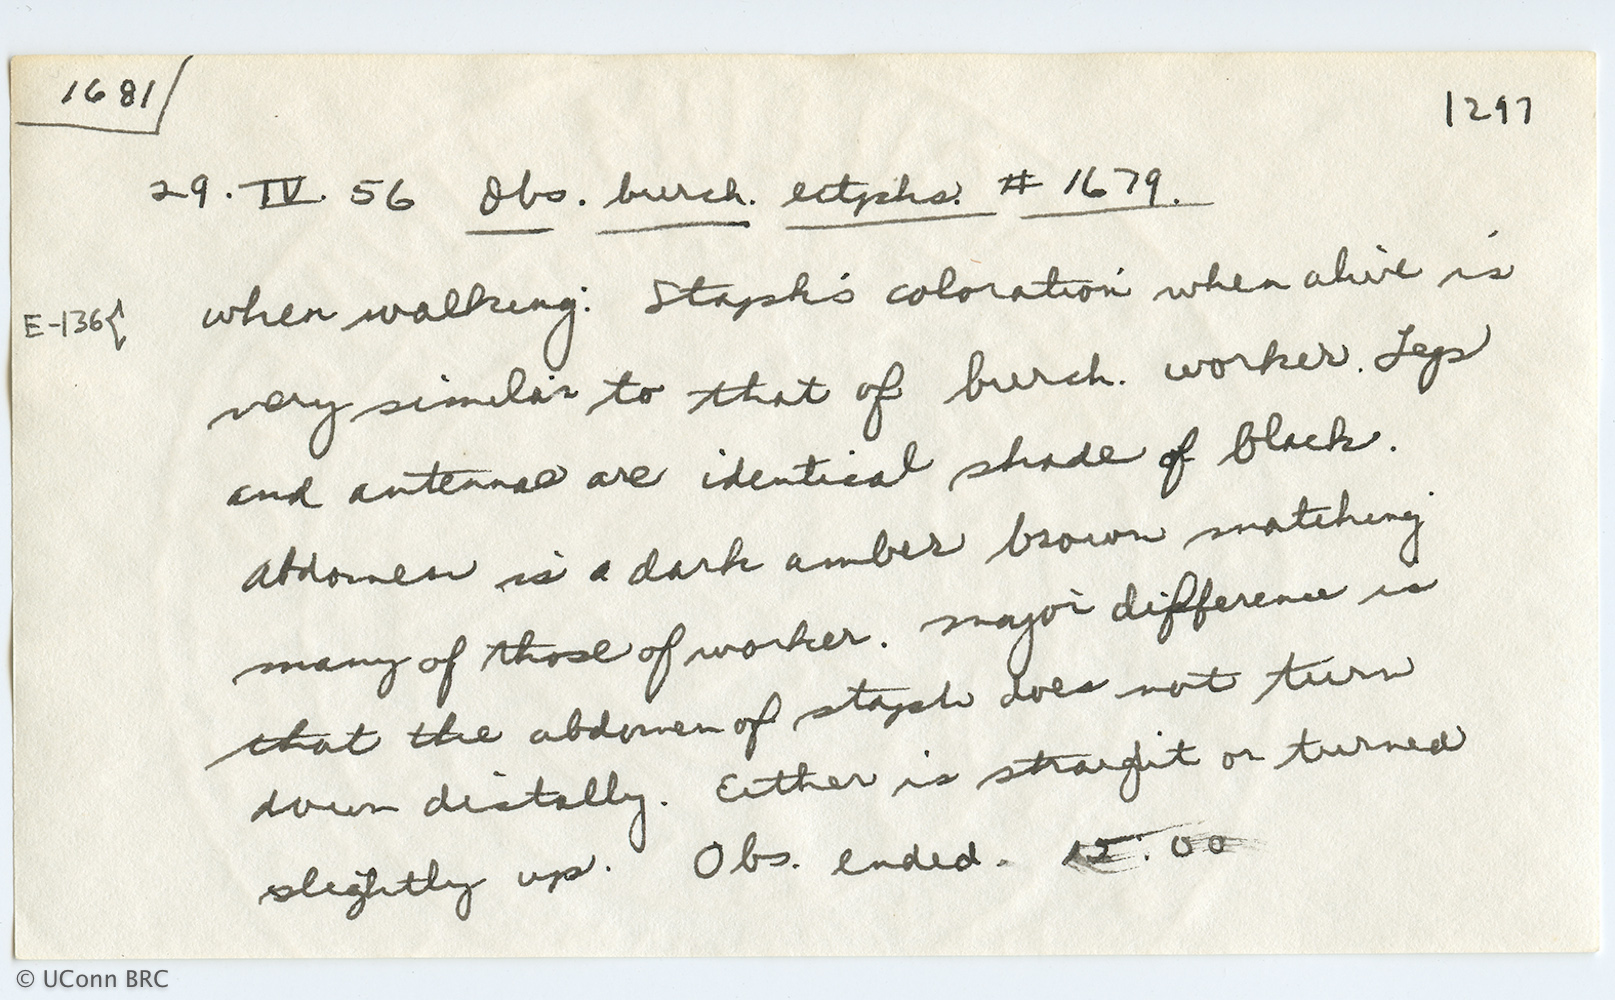 1681
1297
29. IV. 56 Obs. burch. ectphs. # 1679.
E-136{ when walking. Staph's coloration when alive is
very similar to that of burch. worker. Legs
and antennae are identical shade of black.
Abdomen is a dark amber brown matching
many of those of worker. Major difference is
that the abdomen of staph does not turn
down distally. Either is straight or turned
slightly up. Obs. ended. 12:00
© UConn BRC